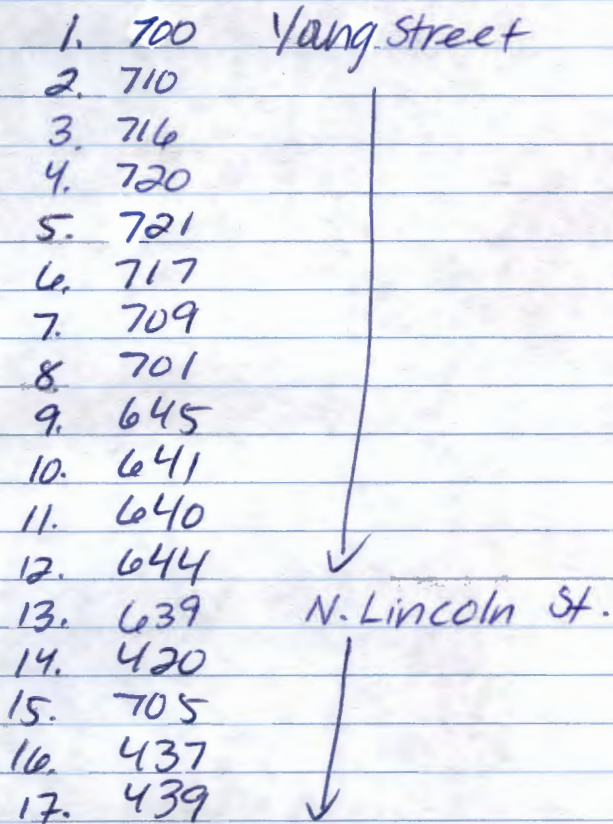 1. 700 Yang Street
2. 710
3. 716
4. 720
5. 721
6. 717
7. 709
8. 701
9. 645
10. 641
11. 640
12. 644
13. 639 N. Lincoln St.
14. 420
15. 705
16. 437
17. 439